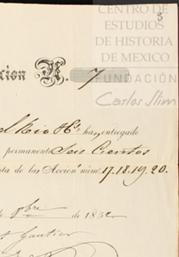 CENTRO DE
ESTUDIOS
DE HISTORIA
DE MEXICO
FUNDACIÓN
Carlos Slim
3
cion N. 7
el Rio Hs. has entregado
permanente Seis Cientos
ta de las Accion.s num.s 17.18.19.20.
de 8bre de 1832
Gautier